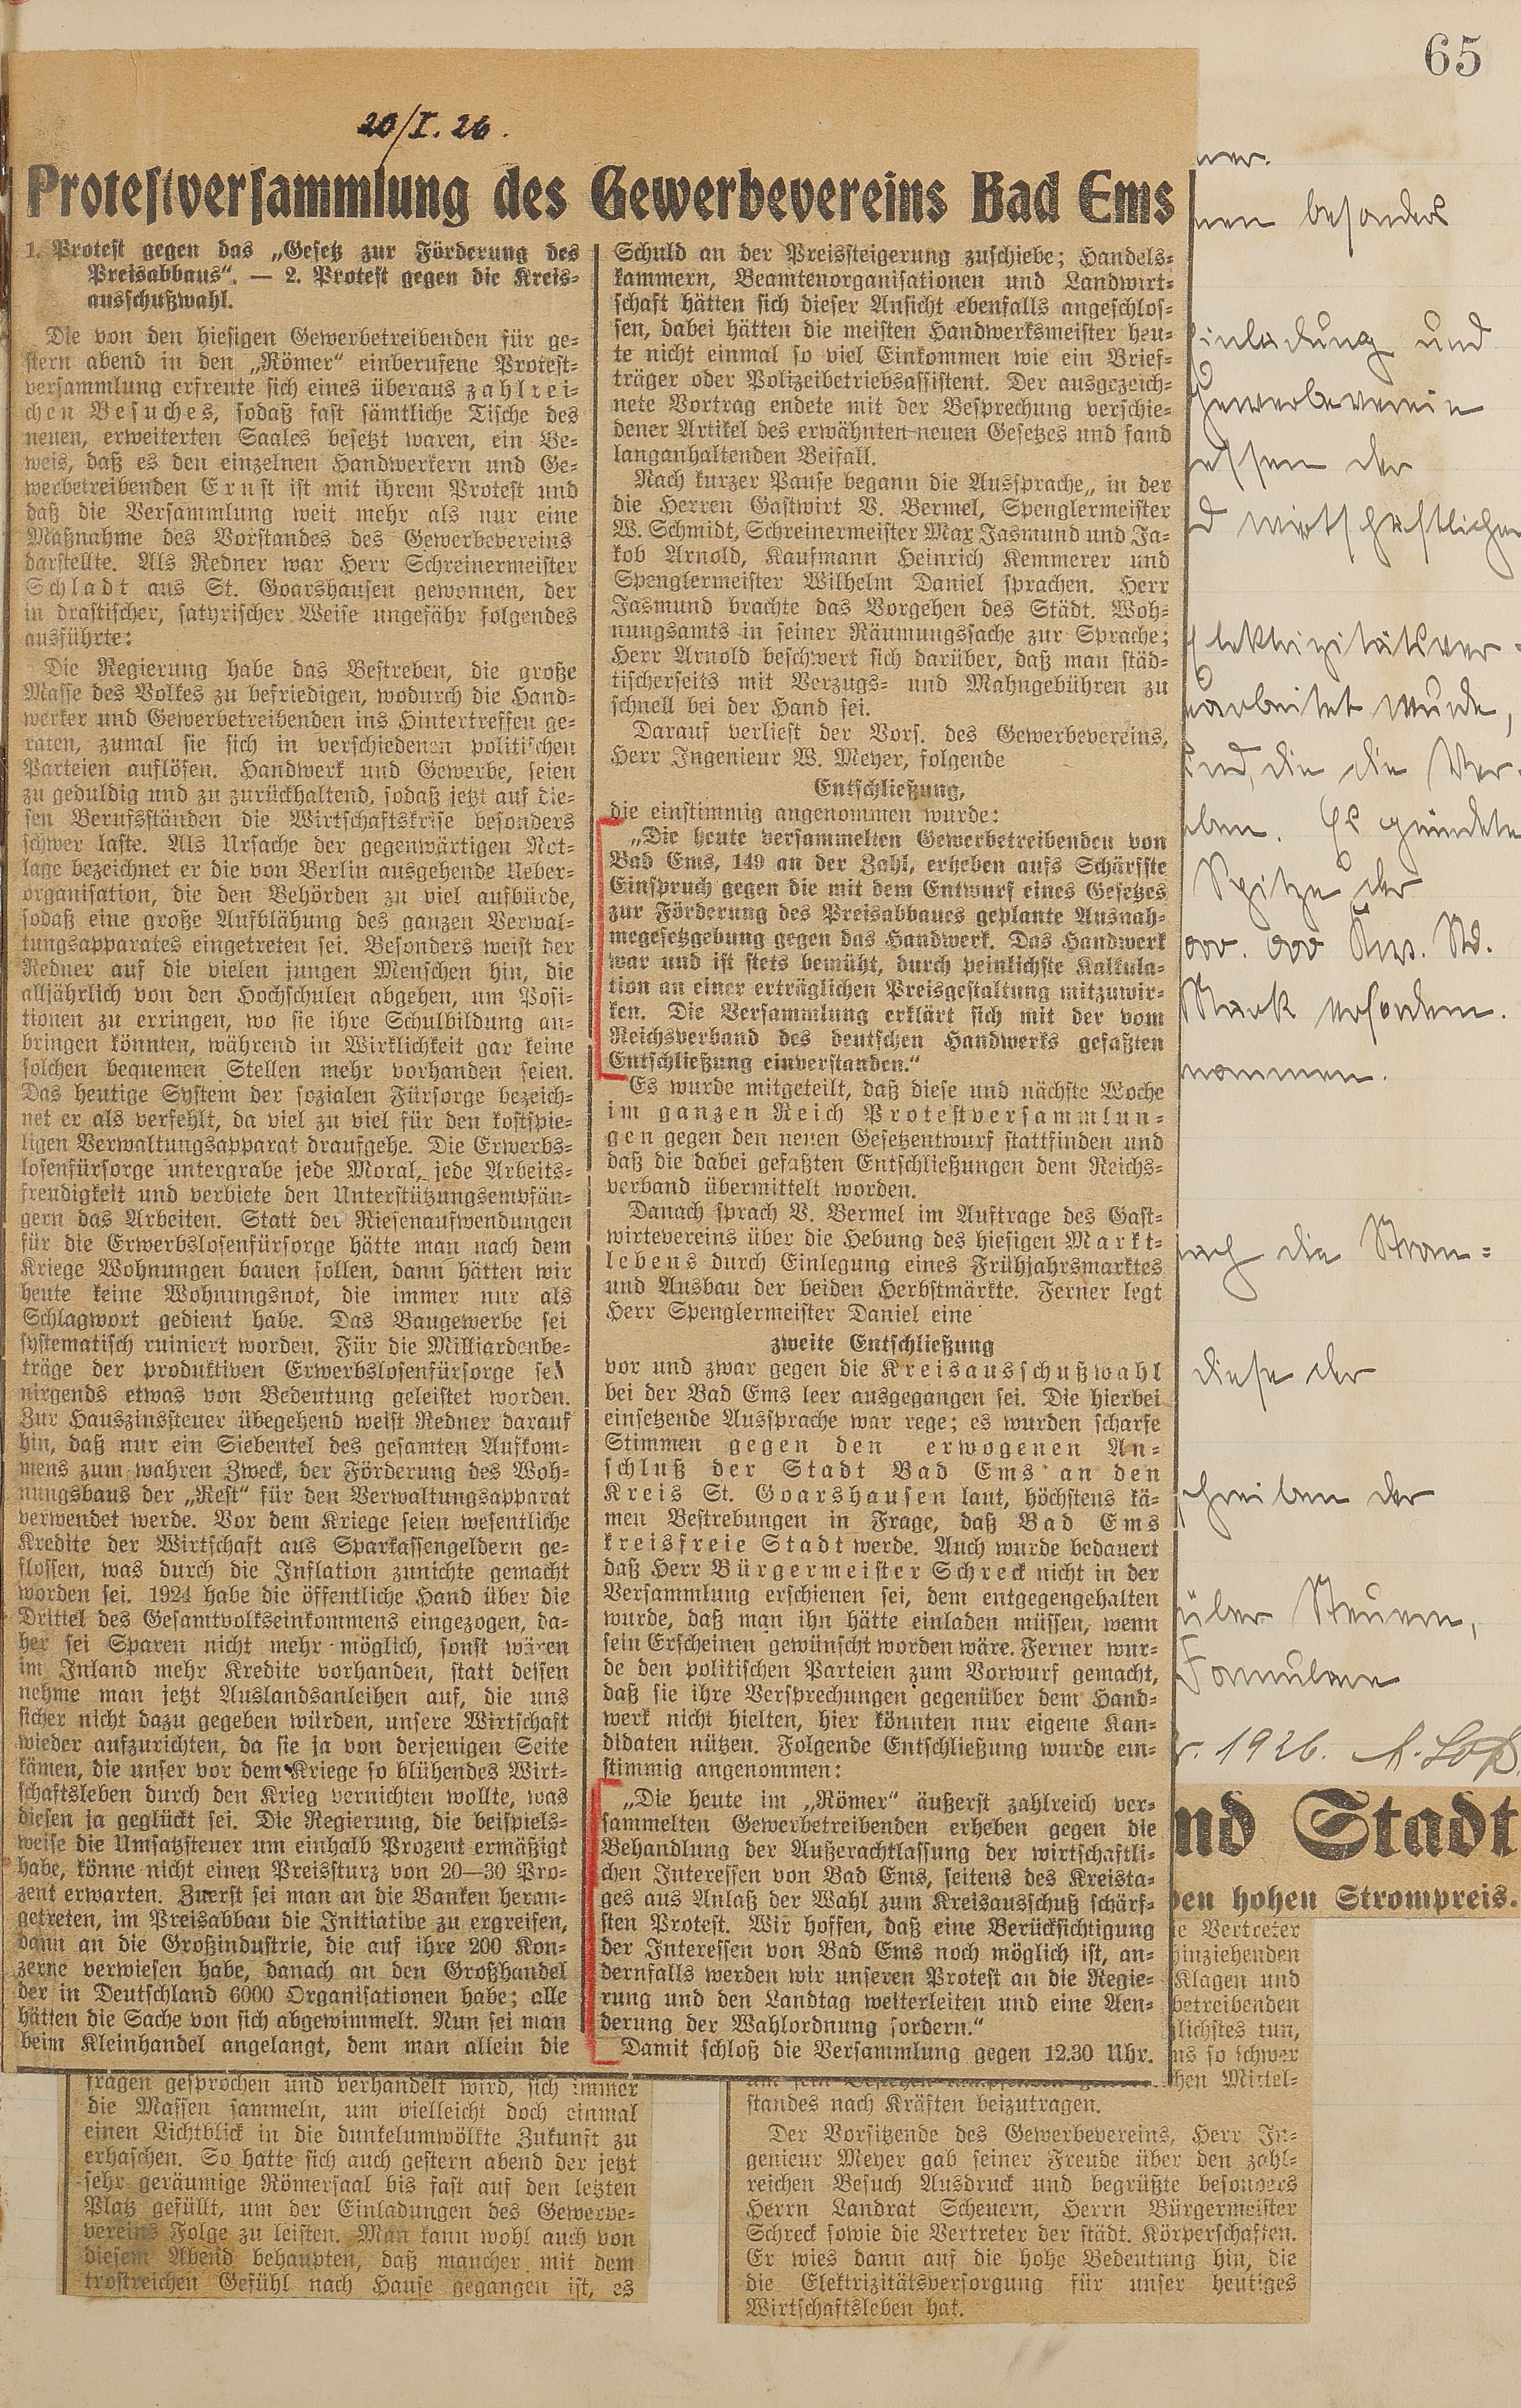 65
20/I. 26.
Protestversammlung des Gewerbevereins Bad Ems
1. Protest gegen das „Gesetz zur Förderung des
Preisabbaus“. — 2. Protest gegen die Kreis-
ausschußwahl.
Die von den hiesigen Gewerbetreibenden für ge-
stern abend in den „Römer“ einberufene Protest-
versammlung erfreute sich eines überaus zahlrei-
chen Besuches, sodaß fast sämtliche Tische des
neuen, erweiterten Saales besetzt waren, ein Be-
weis, daß es den einzelnen Handwerkern und Ge-
werbetreibenden Ernst ist mit ihrem Protest und
daß die Versammlung weit mehr als nur eine
Maßnahme des Vorstandes des Gewerbevereins
darstellte. Als Redner war Herr Schreinermeister
Schladt aus St. Goarshausen gewonnen, der
in drastischer, satyrischer Weise ungefähr folgendes
ausführte:
Die Regierung habe das Bestreben, die große
Masse des Volkes zu befriedigen, wodurch die Hand-
werker und Gewerbetreibenden ins Hintertreffen ge-
raten, zumal sie sich in verschiedenen politischen
Parteien auflösen. Handwerk und Gewerbe, seien
zu geduldig und zu zurückhaltend, sodaß jetzt auf die-
sen Berufsständen die Wirtschaftskrise besonders
schwer laste. Als Ursache der gegenwärtigen Not-
lage bezeichnet er die von Berlin ausgehende Ueber-
organisation, die den Behörden zu viel aufbürde,
sodaß eine große Aufblähung des ganzen Verwal-
tungsapparates eingetreten sei. Besonders weist der
Redner auf die vielen jungen Menschen hin, die
alljährlich von den Hochschulen abgehen, um Posi-
tionen zu erringen, wo sie ihre Schulbildung an-
bringen könnten, während in Wirklichkeit gar keine
solchen bequemen Stellen mehr vorhanden seien.
Das heutige System der sozialen Fürsorge bezeich-
net er als verfehlt, da viel zu viel für den kostspie-
ligen Verwaltungsapparat draufgehe. Die Erwerbs-
losenfürsorge untergrabe jede Moral, jede Arbeits-
freudigkeit und verbiete den Unterstützungsempfän-
gern das Arbeiten. Statt der Riesenaufwendungen
für die Erwerbslosenfürsorge hätte man nach dem
Kriege Wohnungen bauen sollen, dann hätten wir
heute keine Wohnungsnot, die immer nur als
Schlagwort gedient habe. Das Baugewerbe sei
systematisch ruiniert worden. Für die Milliardenbe-
träge der produktiven Erwerbslosenfürsorge sei
nirgends etwas von Bedeutung geleistet worden.
Zur Hauszinssteuer übegehend weist Redner darauf
hin, daß nur ein Siebentel des gesamten Aufkom-
mens zum wahren Zweck, der Förderung des Woh-
nungsbaus der „Rest“ für den Verwaltungsapparat
verwendet werde. Vor dem Kriege seien wesentliche
Kredite der Wirtschaft aus Sparkassengeldern ge-
flossen, was durch die Inflation zunichte gemacht
worden sei. 1924 habe die öffentliche Hand über die
Drittel des Gesamtvolkseinkommens eingezogen, da-
her sei Sparen nicht mehr möglich, sonst wären
im Inland mehr Kredite vorhanden, statt dessen
nehme man jetzt Auslandsanleihen auf, die uns
sicher nicht dazu gegeben würden, unsere Wirtschaft
wieder aufzurichten, da sie ja von derjenigen Seite
kämen, die unser vor dem Kriege so blühendes Wirt-
schaftsleben durch den Krieg vernichten wollte, was
diesen ja geglückt sei. Die Regierung, die beispiels-
weise die Umsatzsteuer um einhalb Prozent ermäßigt
habe, könne nicht einen Preissturz von 20—30 Pro-
zent erwarten. Zuerst sei man an die Banken heran-
getreten, im Preisabbau die Initiative zu ergreifen,
dann an die Großindustrie, die auf ihre 200 Kon-
zerne verwiesen habe, danach an den Großhandel
der in Deutschland 6000 Organisationen habe; alle
hätten die Sache von sich abgewimmelt. Nun sei man
beim Kleinhandel angelangt, dem man allein die
Schuld an der Preissteigerung zuschiebe; Handels-
kammern, Beamtenorganisationen und Landwirt-
schaft hätten sich dieser Ansicht ebenfalls angeschlos-
sen, dabei hätten die meisten Handwerksmeister heu-
te nicht einmal so viel Einkommen wie ein Brief-
träger oder Polizeibetriebsassistent. Der ausgezeich-
nete Vortrag endete mit der Besprechung verschie-
dener Artikel des erwähnten neuen Gesetzes und fand
langanhaltenden Beifall.
Nach kurzer Pause begann die Aussprache„ in der
die Herren Gastwirt V. Bermel, Spenglermeister
W. Schmidt, Schreinermeister Max Jasmund und Ja-
kob Arnold, Kaufmann Heinrich Kemmerer und
Spenglermeister Wilhelm Daniel sprachen. Herr
Jasmund brachte das Vorgehen des Städt. Woh-
nungsamts in seiner Räumungssache zur Sprache;
Herr Arnold beschwert sich darüber, daß man städ-
tischerseits mit Verzugs- und Mahngebühren zu
schnell bei der Hand sei.
Darauf verliest der Vors. des Gewerbevereins,
Herr Ingenieur W. Meyer, folgende
Entschließung,
die einstimmig angenommen wurde:
„Die heute versammelten Gewerbetreibenden von
Bad Ems, 149 an der Zahl, erheben aufs Schärfste
Einspruch gegen die mit dem Entwurf eines Gesetzes
zur Förderung des Preisabbaues geplante Ausnah-
megesetzgebung gegen das Handwerk. Das Handwerk
war und ist stets bemüht, durch peinlichste Kalkula-
tion an einer erträglichen Preisgestaltung mitzuwir-
ken. Die Versammlung erklärt sich mit der vom
Reichsverband des deutschen Handwerks gefaßten
Entschließung einverstanden.“
Es wurde mitgeteilt, daß diese und nächste Woche
im ganzen Reich Protestversammlun-
gen gegen den neuen Gesetzentwurf stattfinden und
daß die dabei gefaßten Entschließungen dem Reichs-
verband übermittelt worden.
Danach sprach V. Bermel im Auftrage des Gast-
wirtevereins über die Hebung des hiesigen Markt-
lebens durch Einlegung eines Frühjahrsmarktes
und Ausbau der beiden Herbstmärkte. Ferner legt
Herr Spenglermeister Daniel eine
zweite Entschließung
vor und zwar gegen die Kreisausschußwahl
bei der Bad Ems leer ausgegangen sei. Die hierbei
einsetzende Aussprache war rege; es wurden scharfe
Stimmen gegen den erwogenen An-
schluß der Stadt Bad Ems an den
Kreis St. Goarshausen laut, höchstens kä-
men Bestrebungen in Frage, daß Bad Ems
kreisfreie Stadt werde. Auch wurde bedauert
daß Herr Bürgermeister Schreck nicht in der
Versammlung erschienen sei, dem entgegengehalten
wurde, daß man ihn hätte einladen müssen, wenn
sein Erscheinen gewünscht worden wäre. Ferner wur-
de den politischen Parteien zum Vorwurf gemacht,
daß sie ihre Versprechungen gegenüber dem Hand-
werk nicht hielten, hier könnten nur eigene Kan-
didaten nützen. Folgende Entschließung wurde ein-
stimmig angenommen:
„Die heute im „Römer“ äußerst zahlreich ver-
sammelten Gewerbetreibenden erheben gegen die
Behandlung der Außerachtlassung der wirtschaftli-
chen Interessen von Bad Ems, seitens des Kreista-
ges aus Anlaß der Wahl zum Kreisausschuß schärf-
sten Protest. Wir hoffen, daß eine Berücksichtigung
der Interessen von Bad Ems noch möglich ist, an-
dernfalls werden wir unseren Protest an die Regie-
rung und den Landtag weiterleiten und eine Aen-
derung der Wahlordnung fordern.“
Damit schloß die Versammlung gegen 12.30 Uhr.
ner.
nen besonders
inladung und
Gewerbeverein
essen der
d wirtschaftlichen
Elektrizitätsver-
arbeitet wurde,
sind, die die Ver-
ben. Es gründete
Spitze der
000. 000 Kw. Std.
Mark erfordern.
nommen.
nach die Strom-
diese der
chreiben der
über Steuern,
Formulare
1926.
nd Stadt
en hohen Strompreis.
e Vertreter
hinziehenden
Klagen und
betreibenden
lichstes tun,
ns so schwer
hen Mittel-
fragen gesprochen und verhandelt wird, sich immer
die Massen sammeln, um vielleicht doch einmal
einen Lichtblick in die dunkelumwölkte Zukunft zu
erhaschen. So hatte sich auch gestern abend der jetzt
sehr geräumige Römersaal bis fast auf den letzten
Platz gefüllt, um der Einladungen des Gewerbe-
vereins Folge zu leisten. Man kann wohl auch von
diesem Abend behaupten, daß mancher mit dem
trostreichen Gefühl nach Hause gegangen ist, es
standes nach Kräften beizutragen.
Der Vorsitzende des Gewerbevereins, Herr In-
genieur Meyer gab seiner Freude über den zahl-
reichen Besuch Ausdruck und begrüßte besonders
Herrn Landrat Scheuern, Herrn Bürgermeister
Schreck sowie die Vertreter der städt. Körperschaften.
Er wies dann auf die hohe Bedeutung hin, die
die Elektrizitätsversorgung für unser heutiges
Wirtschaftsleben hat.